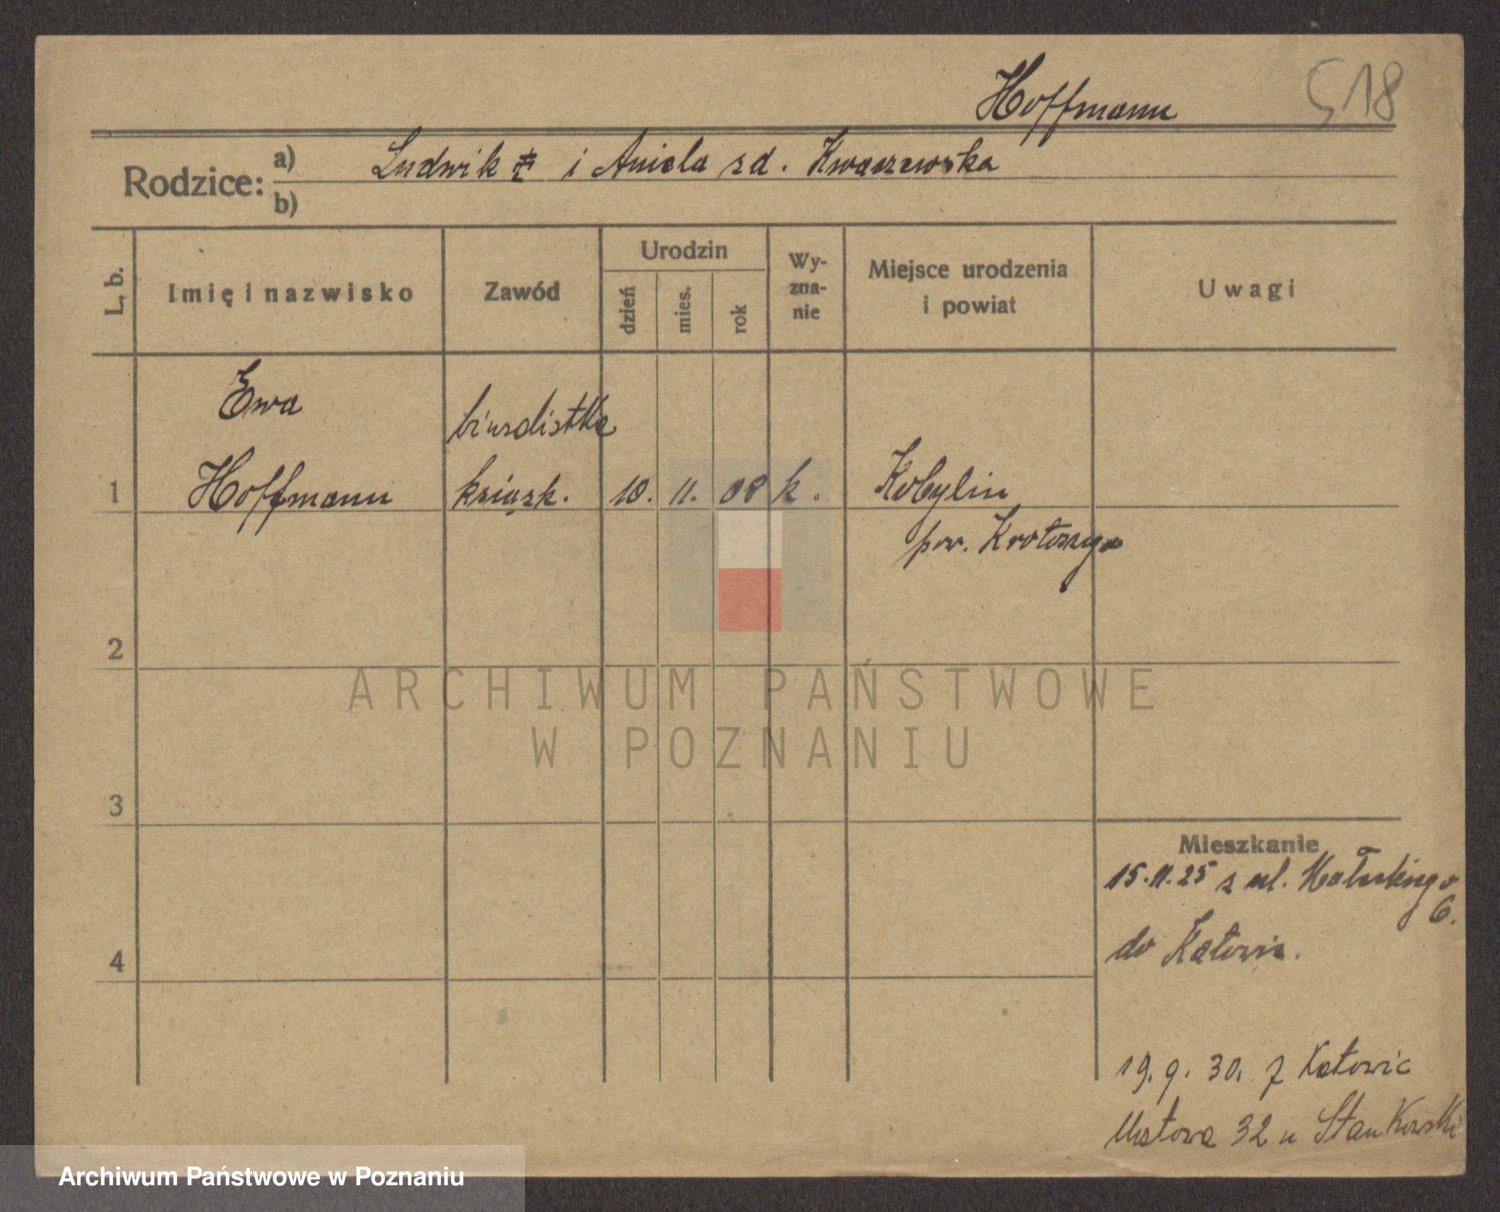 Hoffmann 518
Rodzice: a) Ludwik ‡ i Aniela zd. Kwaszewska
b)
L. b. Imię i nazwisko Zawód Urodzin dzień mies. rok Wy-zna-nie Miejsce urodzenia i powiat Uwagi
Ewa biuralistka
1 Hoffmann książk. 10. 11. 08 k. Kobylin
pow. Krotoszyn
2
ARCHIWUM PAŃSTWOWE
W POZNANIU
3
Mieszkanie
15.11.25 z ul.
6.
4 do Katowic.
19.9.30. z Katowic
32 u Stankowski
Archiwum Państwowe w Poznaniu